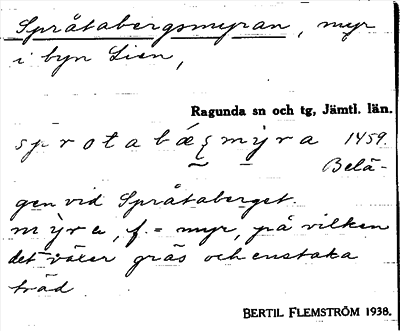 Språtabergsmyran, myr
i byn Lien,
Ragunda sn och tg, Jämtl. län.
sprotabæʂmỳra 1459.
Belä-
gen vid Språtaberget.
mỳra, f. = myr, på vilken
det växer gräs och enstaka
träd
BERTIL FLEMSTRÖM 1938.